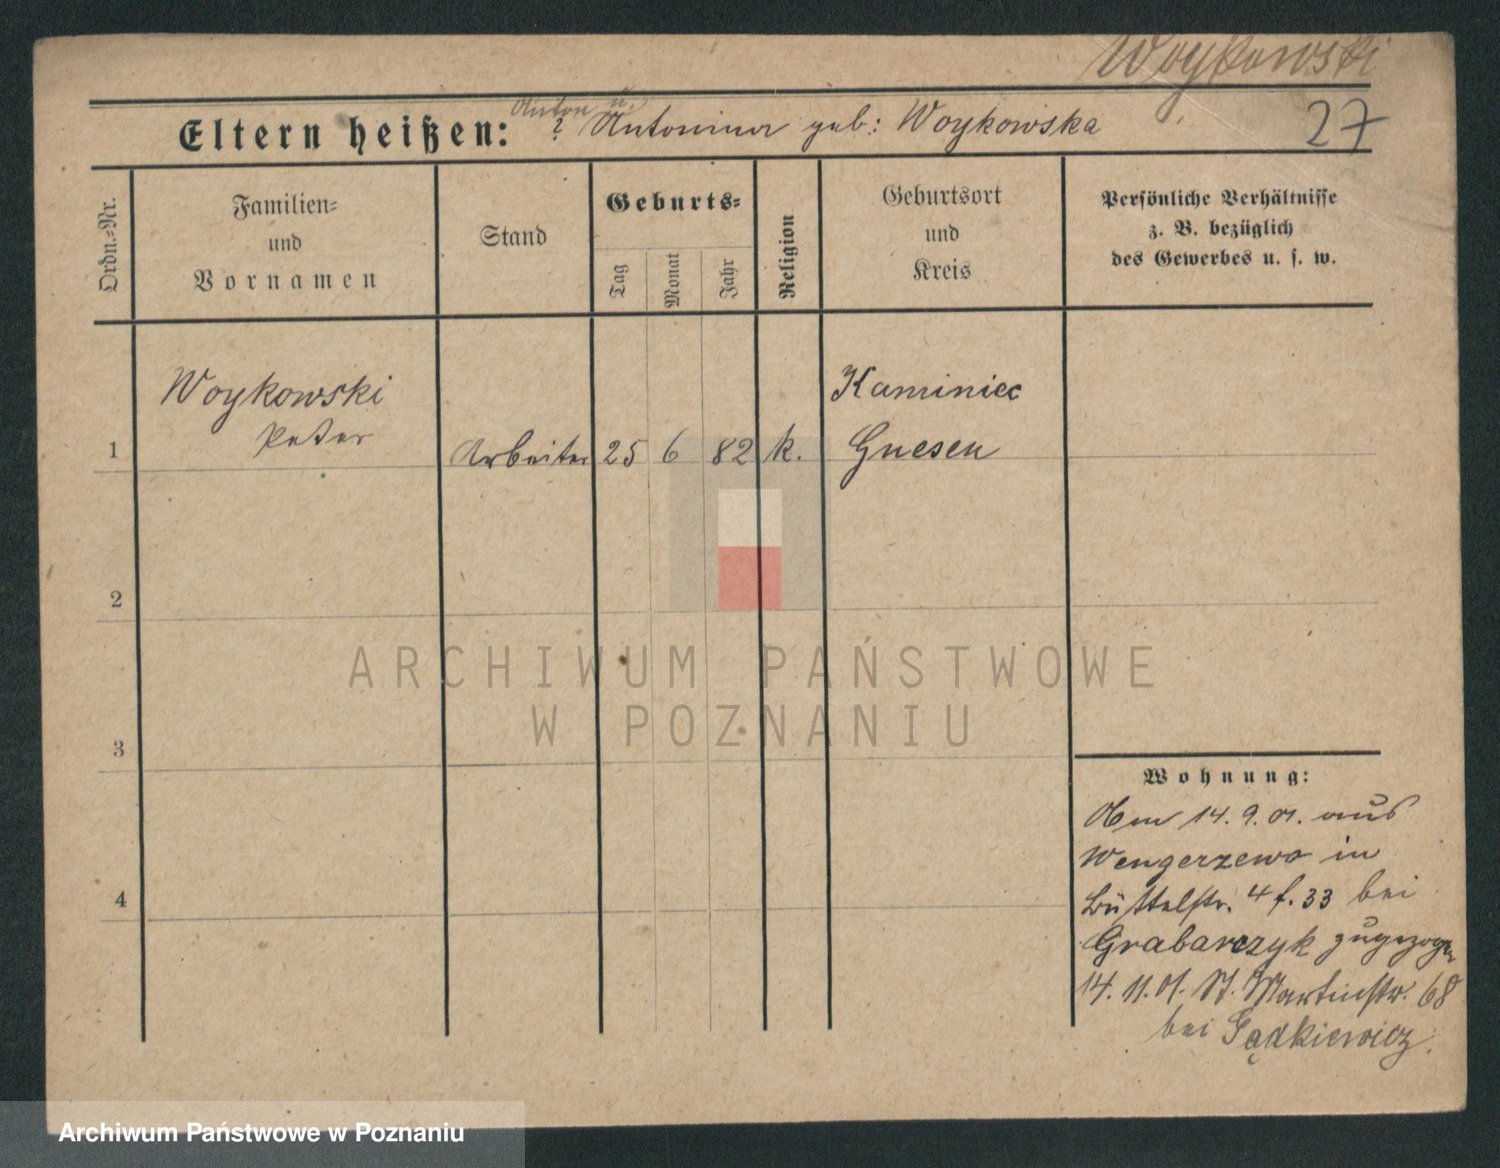 Woykowski
27
Anton u.
Eltern heißen: ? Antonina geb: Woykowska
Ordn.=Nr.
Familien=
und
Vornamen
Stand
Geburts=
Tag
Monat
Jahr
Religion
Geburtsort
und
Kreis
Persönliche Verhältnisse
z. B. bezüglich
des Gewerbes u. s. w.
Woykowski
Kaminiec
1 Peter Arbeiter 25 6 82 k. Gnesen
2
3
4
Wohnung:
Am 14. 9. 01. aus
Wengerzewo in
Büttelstr. 4 f. 33 bei
Grabarczyk zugezogen
14. 11. 01. St. Martinstr. 68
bei
ARCHIWUM PAŃSTWOWE
W POZNANIU
Archiwum Państwowe w Poznaniu